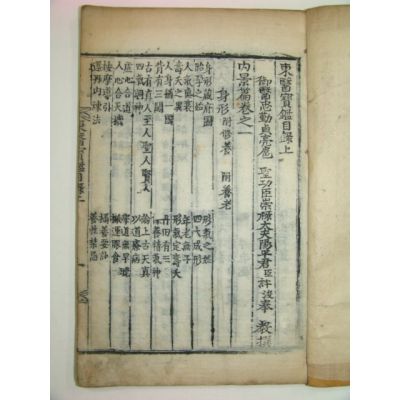 東醫寶鑑目錄上
御醫忠勤貞亮扈聖功臣崇祿大夫陽平君臣許浚奉教撰
內景篇卷之一
身形 附修養 附養老
身形藏府圖 形氣之始
胎孕之始 四大成形
人氣盛衰 年老無子
壽天之異 形氣定壽夭
人身猶一國 丹田有三
背有三關 保養精氣神
古有眞人至人聖人賢人 論上古天眞
四氣調神 以道療病
虛心合道
人心合天機 搬運服食
按摩導引 攝養要訣
還丹內煉法 養性禁忌
東醫寶鑑目錄上